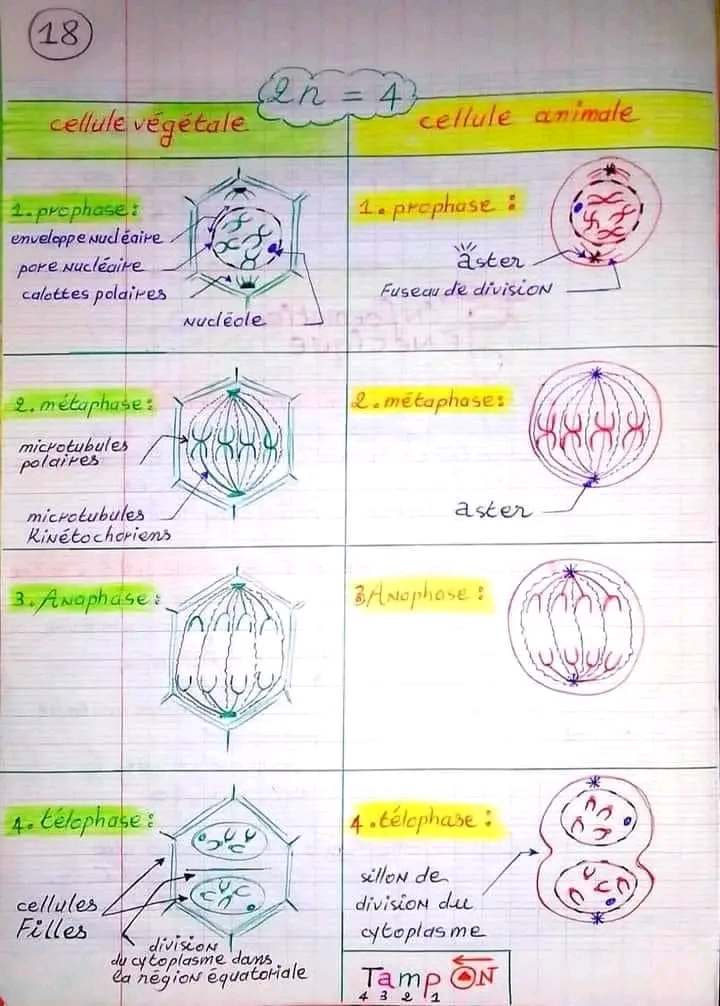 18
2n = 4
cellule végétale
cellule animale
1. prophase :
enveloppe nucléaire
pore nucléaire
calottes polaires
nucléole
1. prophase :
aster
Fuseau de division
2. métaphase :
microtubules
polaires
microtubules
Kinétochoriens
2. métaphase :
aster
3. Anaphase :
3 Anaphase :
4. télophase :
cellules
Filles
division
du cytoplasme dans
la région équatoriale
4. télophase :
sillon de
division du
cytoplasme
Tamp ON
4 3 2 1